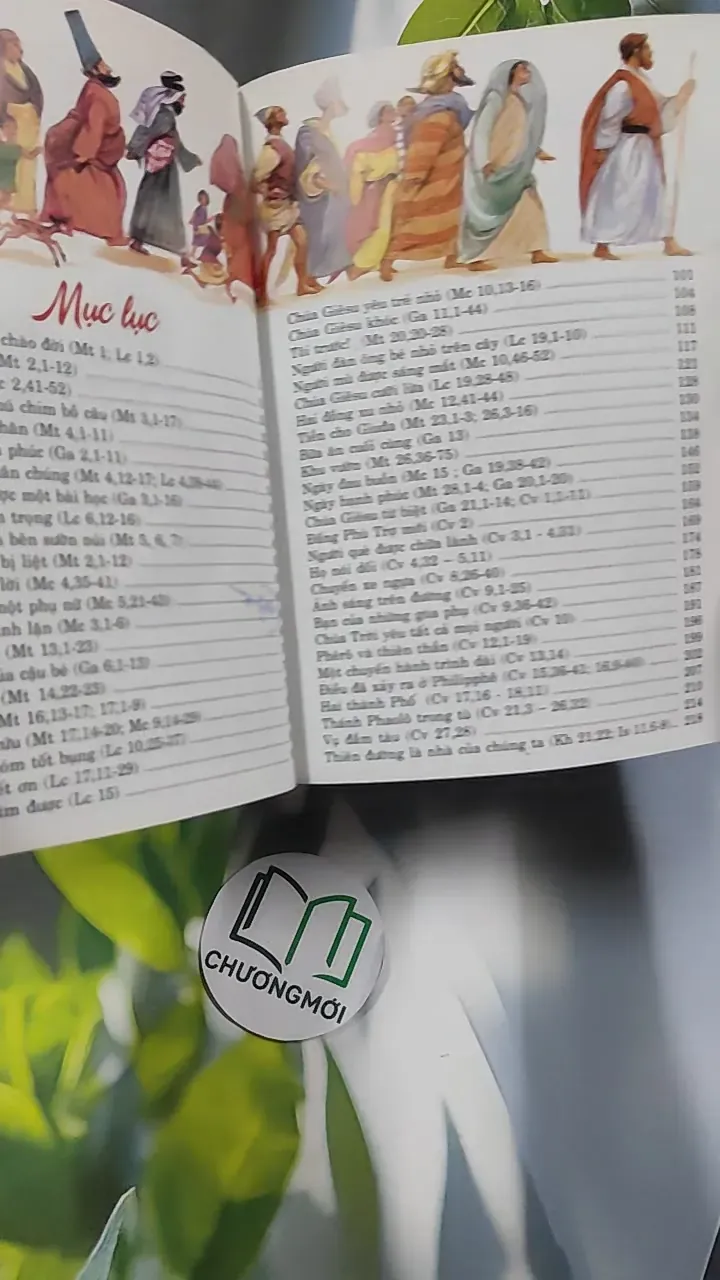 Mục lục
chào đời (Mt 1; Lc 1,2)
Mt 2,1-12)
2,41-52)
chim bồ câu (Mt 3,1-17)
(Mt 4,1-11)
phúc (Ga 2,1-11)
chúng (Mt 4,12-17; Lc
một bài học (Ga 3,1-16)
trọng (Lc 6,12-16)
bên sườn núi (Mt 5, 6, 7)
bị liệt (Mt 2,1-12)
lời (Mc 4,35-41)
một phụ nữ (Mc 5,21-43)
lận (Mc 3,1-6)
(Mt 13,1-23)
của cậu bé (Ga 6,1-13)
(Mt 14,22-23)
Mt 16,13-17; 17,1-9)
(Mt 17,14-20; Mc 9,14-29)
tốt bụng (Lc 10,25-37)
ơn (Lc 17,11-29)
được (Lc 15)
Chúa Giêsu yêu trẻ nhỏ (Mc 10,13-16) 102
Chúa Giêsu khóc (Ga 11,1-44) 104
Tôi trước! (Mt 20,20-28) 108
Người đàn ông bé nhỏ trên cây (Lc 19,1-10) 111
Người mù được sáng mắt (Mc 10,46-52) 117
Chúa Giêsu cưỡi lừa (Lc 19,28-48)
Hai đồng xu nhỏ (Mc 12,41-44) 128
Tiền cho Giuđa (Mt 23,1-3; 26,3-16) 130
Bữa ăn cuối cùng (Ga 13) 134
Khu vườn (Mt 26,36-75) 138
Ngày đau buồn (Mc 15 ; Ga 19,38-42) 146
Ngày hạnh phúc (Mt 28,1-4; Ga 20,1-20) 152
Chúa Giêsu từ biệt (Ga 21,1-14; Cv 1,1-11) 159
Đấng Phù Trợ mới (Cv 2) 164
Người què được chữa lành (Cv 3,1 - 4,31) 169
Họ nói dối (Cv 4,32 – 5,11) 174
Chuyến xe ngựa (Cv 8,26-40) 178
Ánh sáng trên đường (Cv 9,1-25) 181
Bạn của những góa phụ (Cv 9,36-42) 187
Chúa Trời yêu tất cả mọi người (Cv 10) 191
Phêrô và thiên thần (Cv 12,1-19) 196
Một chuyến hành trình dài (Cv 13,14) 199
Điều đã xảy ra ở Philípphê (Cv 15,36-41; 16,9-40) 202
Hai thành Phố (Cv 17,16 - 18,11) 207
Thánh Phaolô trong tù (Cv 21,3 – 26,32) 210
Vụ đắm tàu (Cv 27,28) 214
Thiên đường là nhà của chúng ta (Kh 21,22; Is 11,6-9) 218
CHƯƠNGMỚI